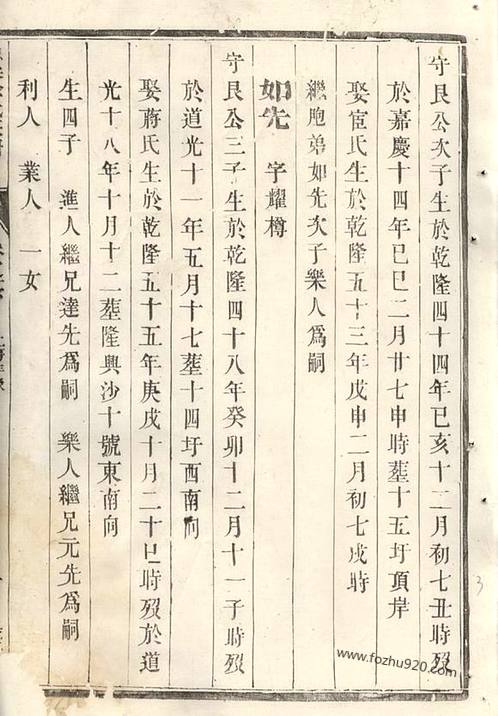 守艮公次子生於乾隆四十四年己亥十二月初七丑時歿
於嘉慶十四年己巳二月廿七申時塟十五圩頂岸
娶宦氏生於乾隆五十三年戊申二月初七戌時
繼胞弟如先次子樂人爲嗣
如先 字耀樽
守艮公三子生於乾隆四十八年癸卯十二月十一子時歿
於道光十一年五月十七塟十四圩西南向
娶蔣氏生於乾隆五十五年庚戌十月二十巳時歿於道
光十八年十月十二塟隆興沙十號東南向
生四子 進人繼兄達先爲嗣 樂人繼兄元先爲嗣
利人 業人 一女
www.fozhu920.com